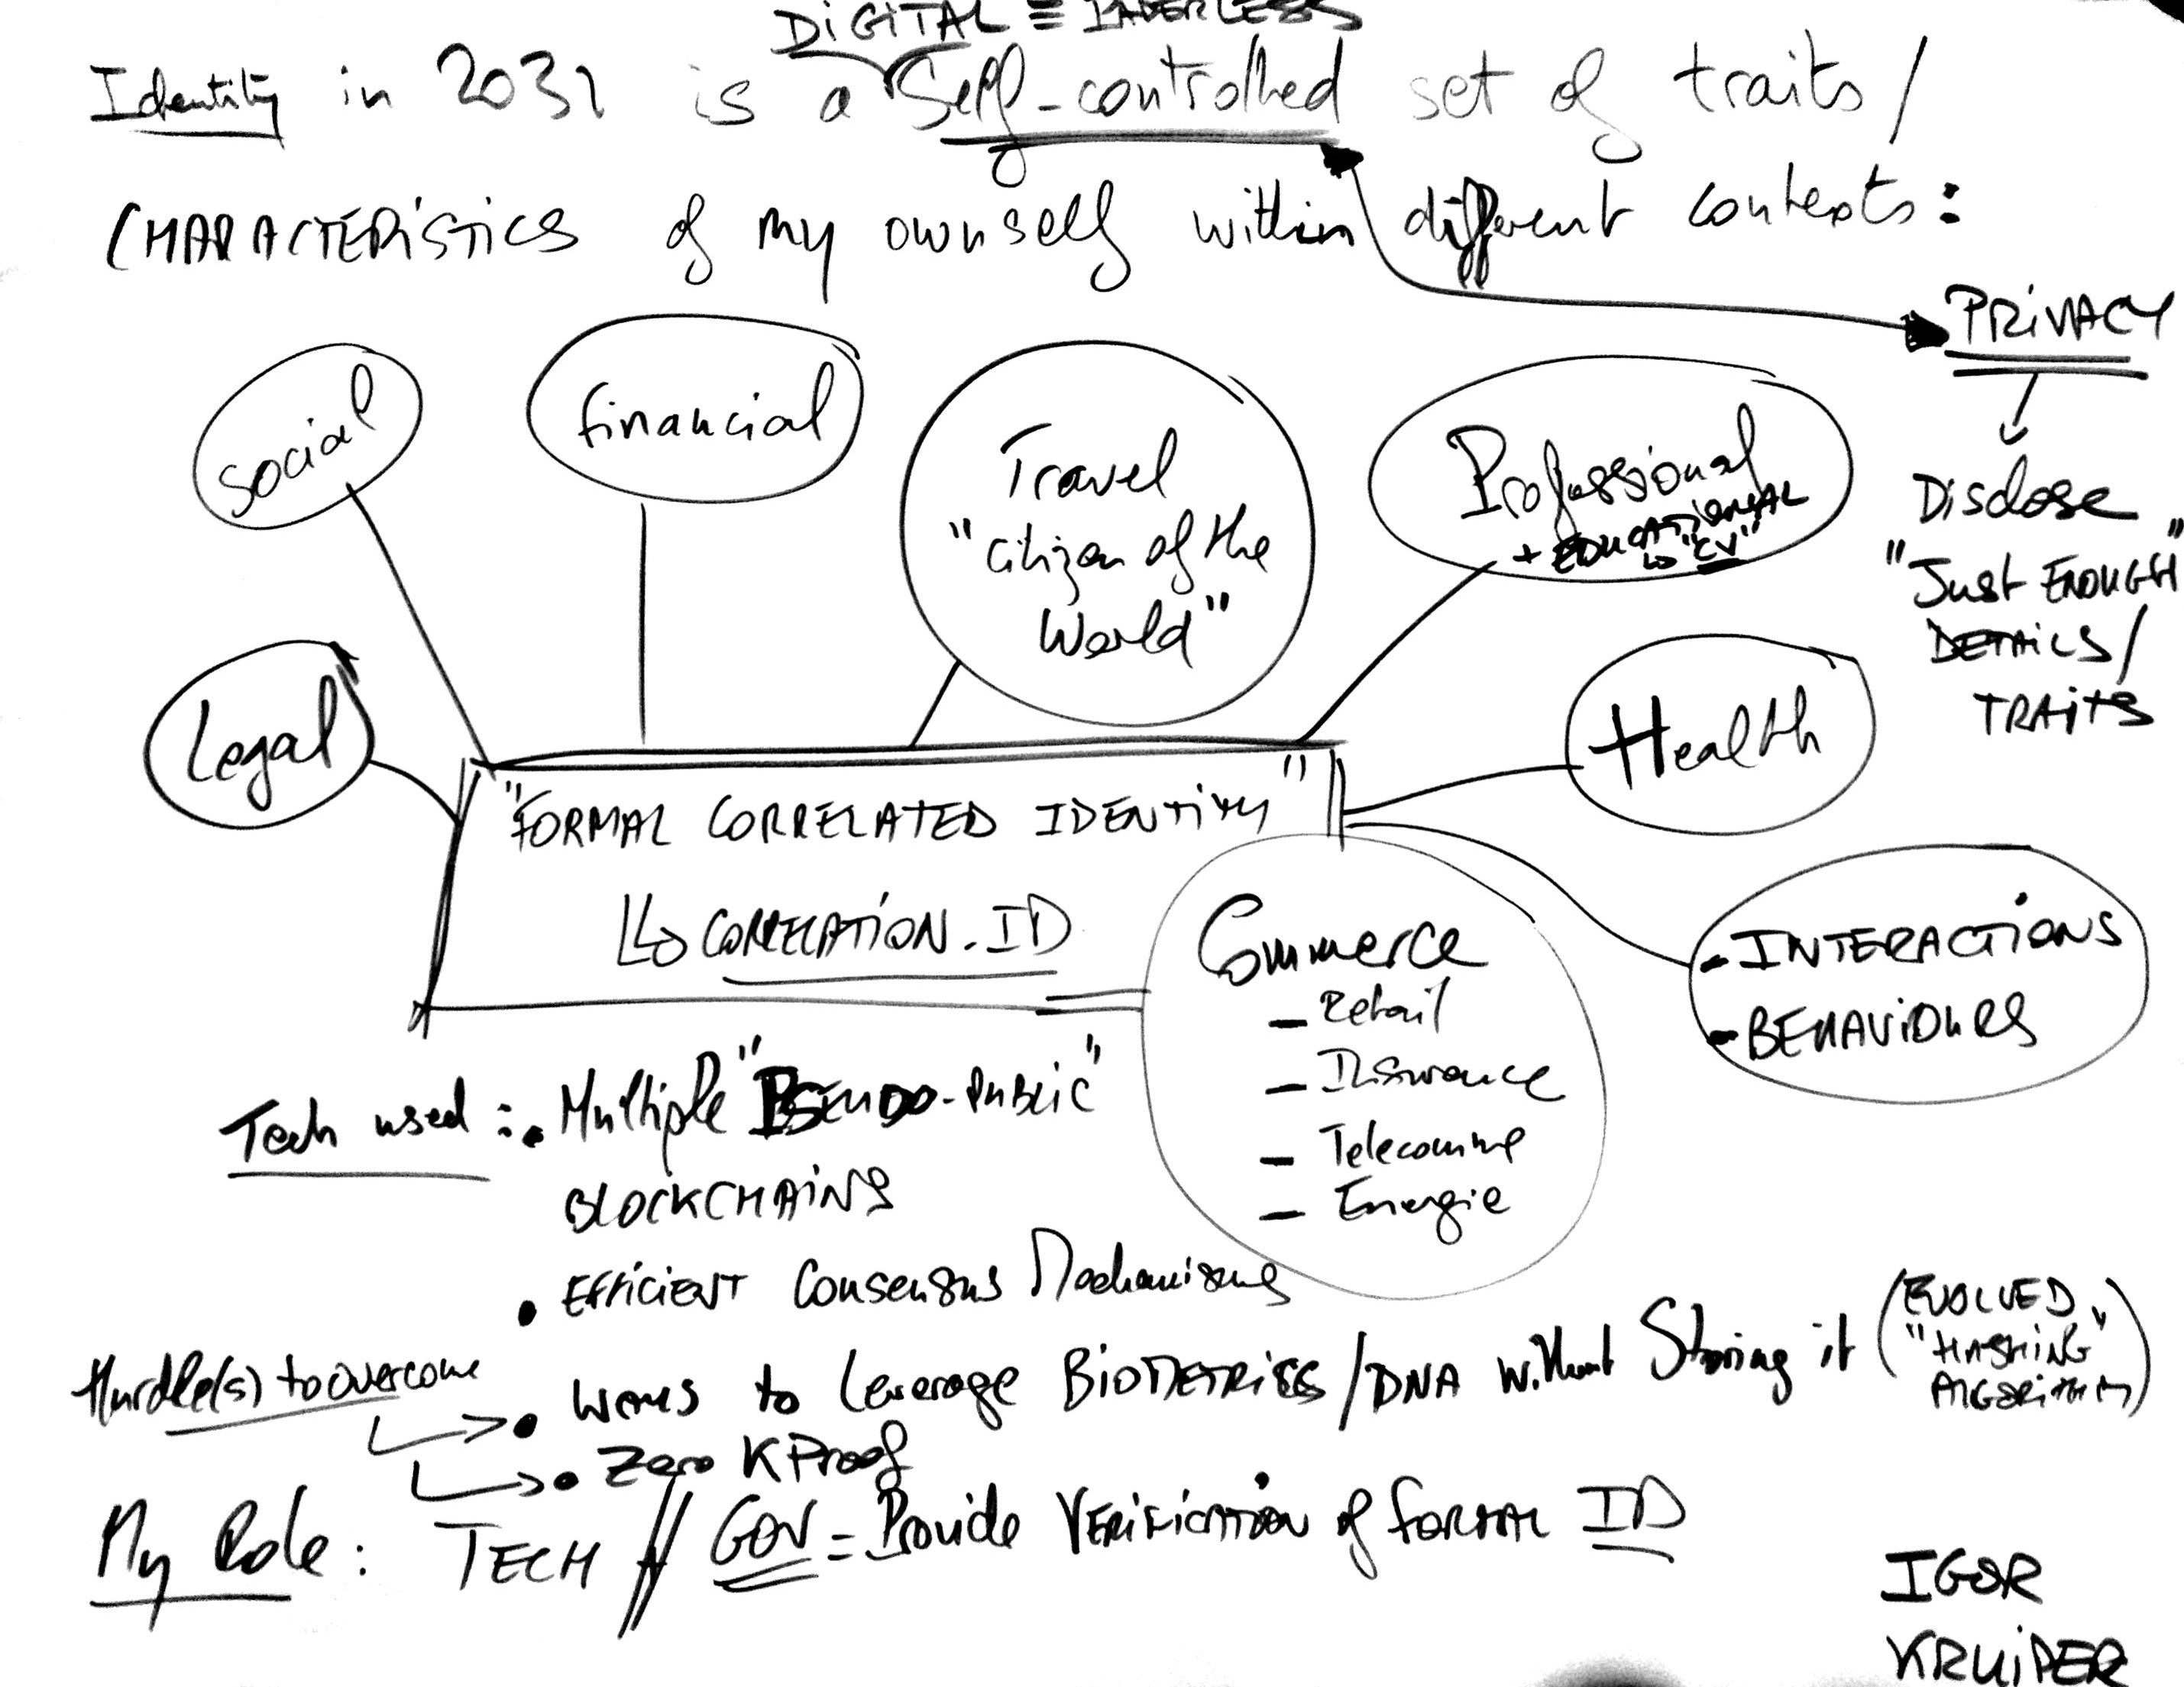 DIGITAL ≡ PAPERLESS
Identity in 2031 is a self-controlled set of traits /
CHARACTERISTICS of my ownself within different contexts:
PRIVACY
Disclose
"Just ENOUGH"
DETAILS /
TRAITS
social
financial
Travel
"Citizen of the
World"
Professional
+ EDUCATIONAL
↳ "CV"
Legal
Health
"FORMAL CORRELATED IDENTITY"
↳ CORRELATION.ID
Commerce
- Retail
- Insurance
- Telecomme
- Energie
- INTERACTIONS
- BEHAVIOURS
Tech used :• Multiple "PSEUDO-PUBLIC"
BLOCKCHAINS
• EFFICIENT Consensus Mechanisms
Hurdle(s) to overcome
• WAYS to Leverage BIOMETRICS / DNA without Storing it (EVOLVED
"HASHING"
ALGORITHM)
• Zero K Proof
My Role: TECH // GOV = Provide VERIFICATION of FORMAL ID
IGOR
KRUIPER